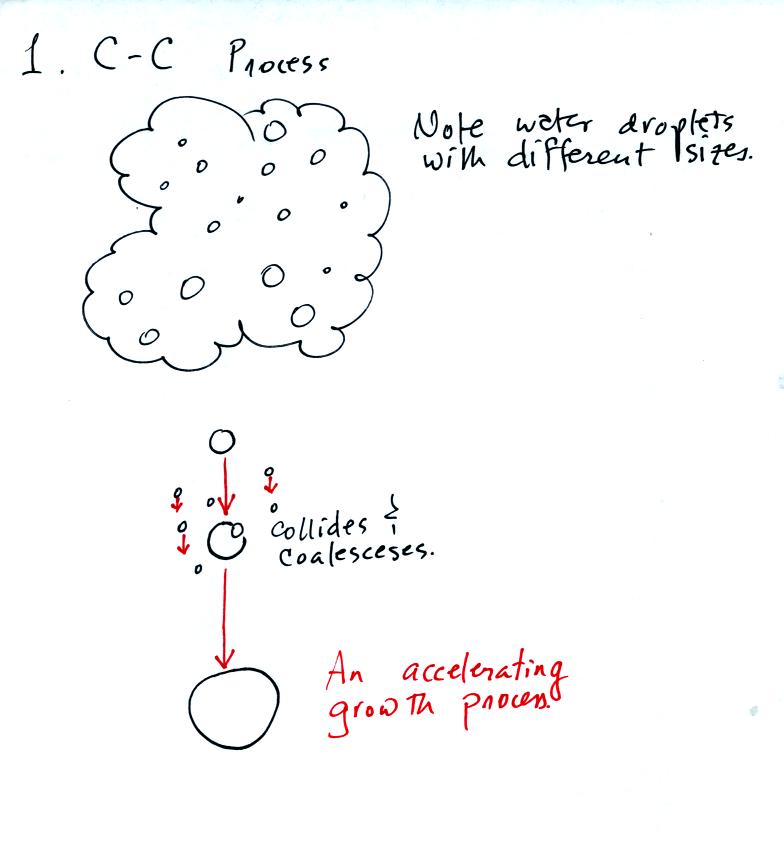 1. C-C Process
Note water droplets
with different sizes.
Collides &
Coalesceses.
An accelerating
growth process